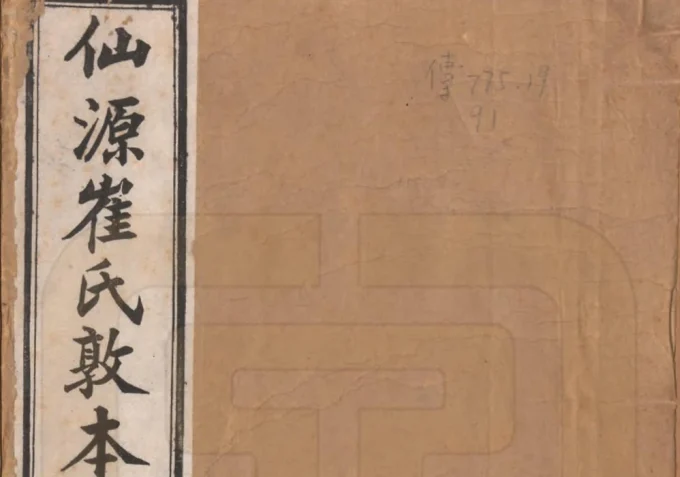 仙源崔氏敦本
傳 775.19
91